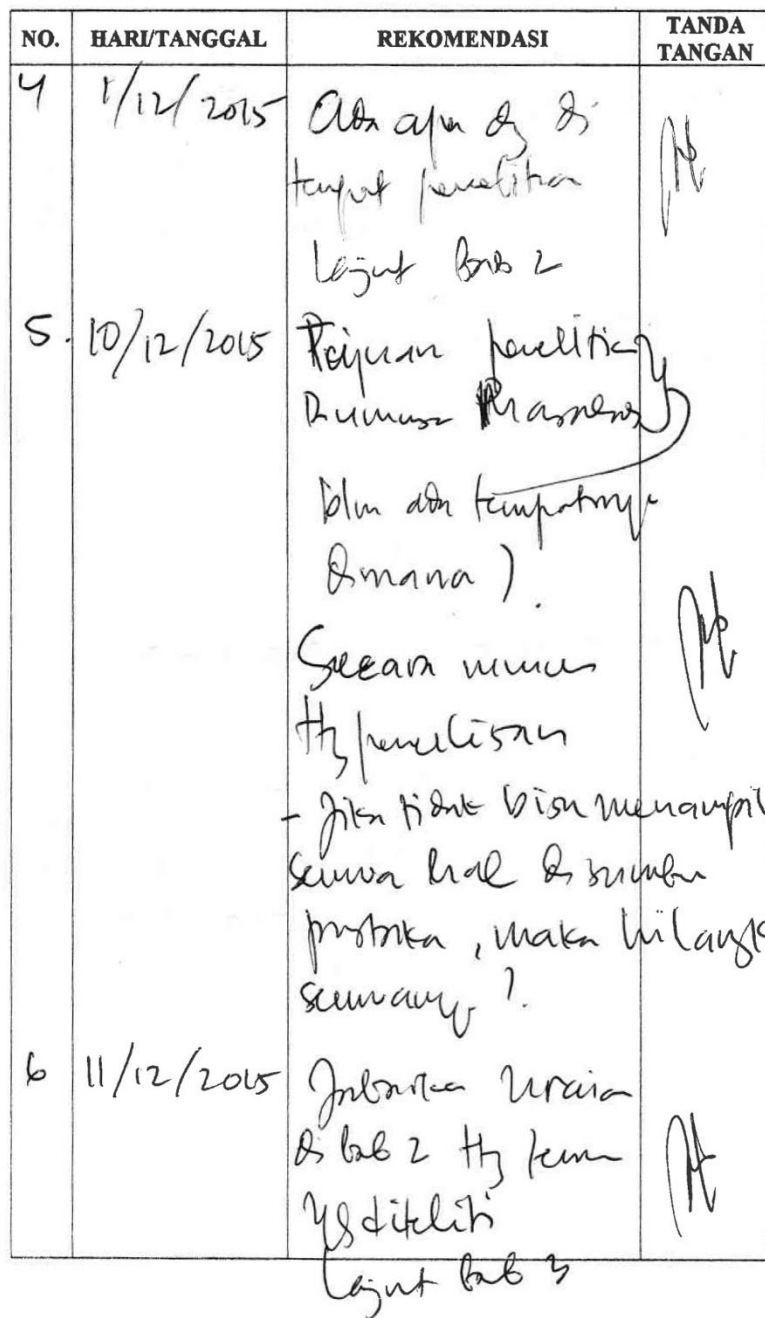 NO. HARI/TANGGAL REKOMENDASI TANDA TANGAN
4 1/12/2015 Ada apa dg di
tempat penelitian
Lanjut Bab 2
5. 10/12/2015 Tujuan penelitian
Rumusan Masalah
blm ada tempatnya
dimana ).
Secara umum
Ttg penelitian
- Jika tidak bisa menampil
semua hal di sumber
pustaka, maka hilangk
semuanya ?.
6 11/12/2015 Jabarkan uraian
di bab 2 ttg
yg diteliti
Lanjut bab 3